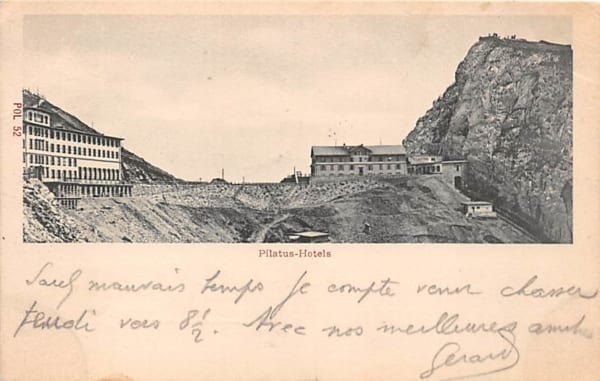 POL 52
Pilatus-Hotels
Sauf mauvais temps je compte venir chasser
Jeudi vers 8½. Avec nos meilleures amitiés
Gérard